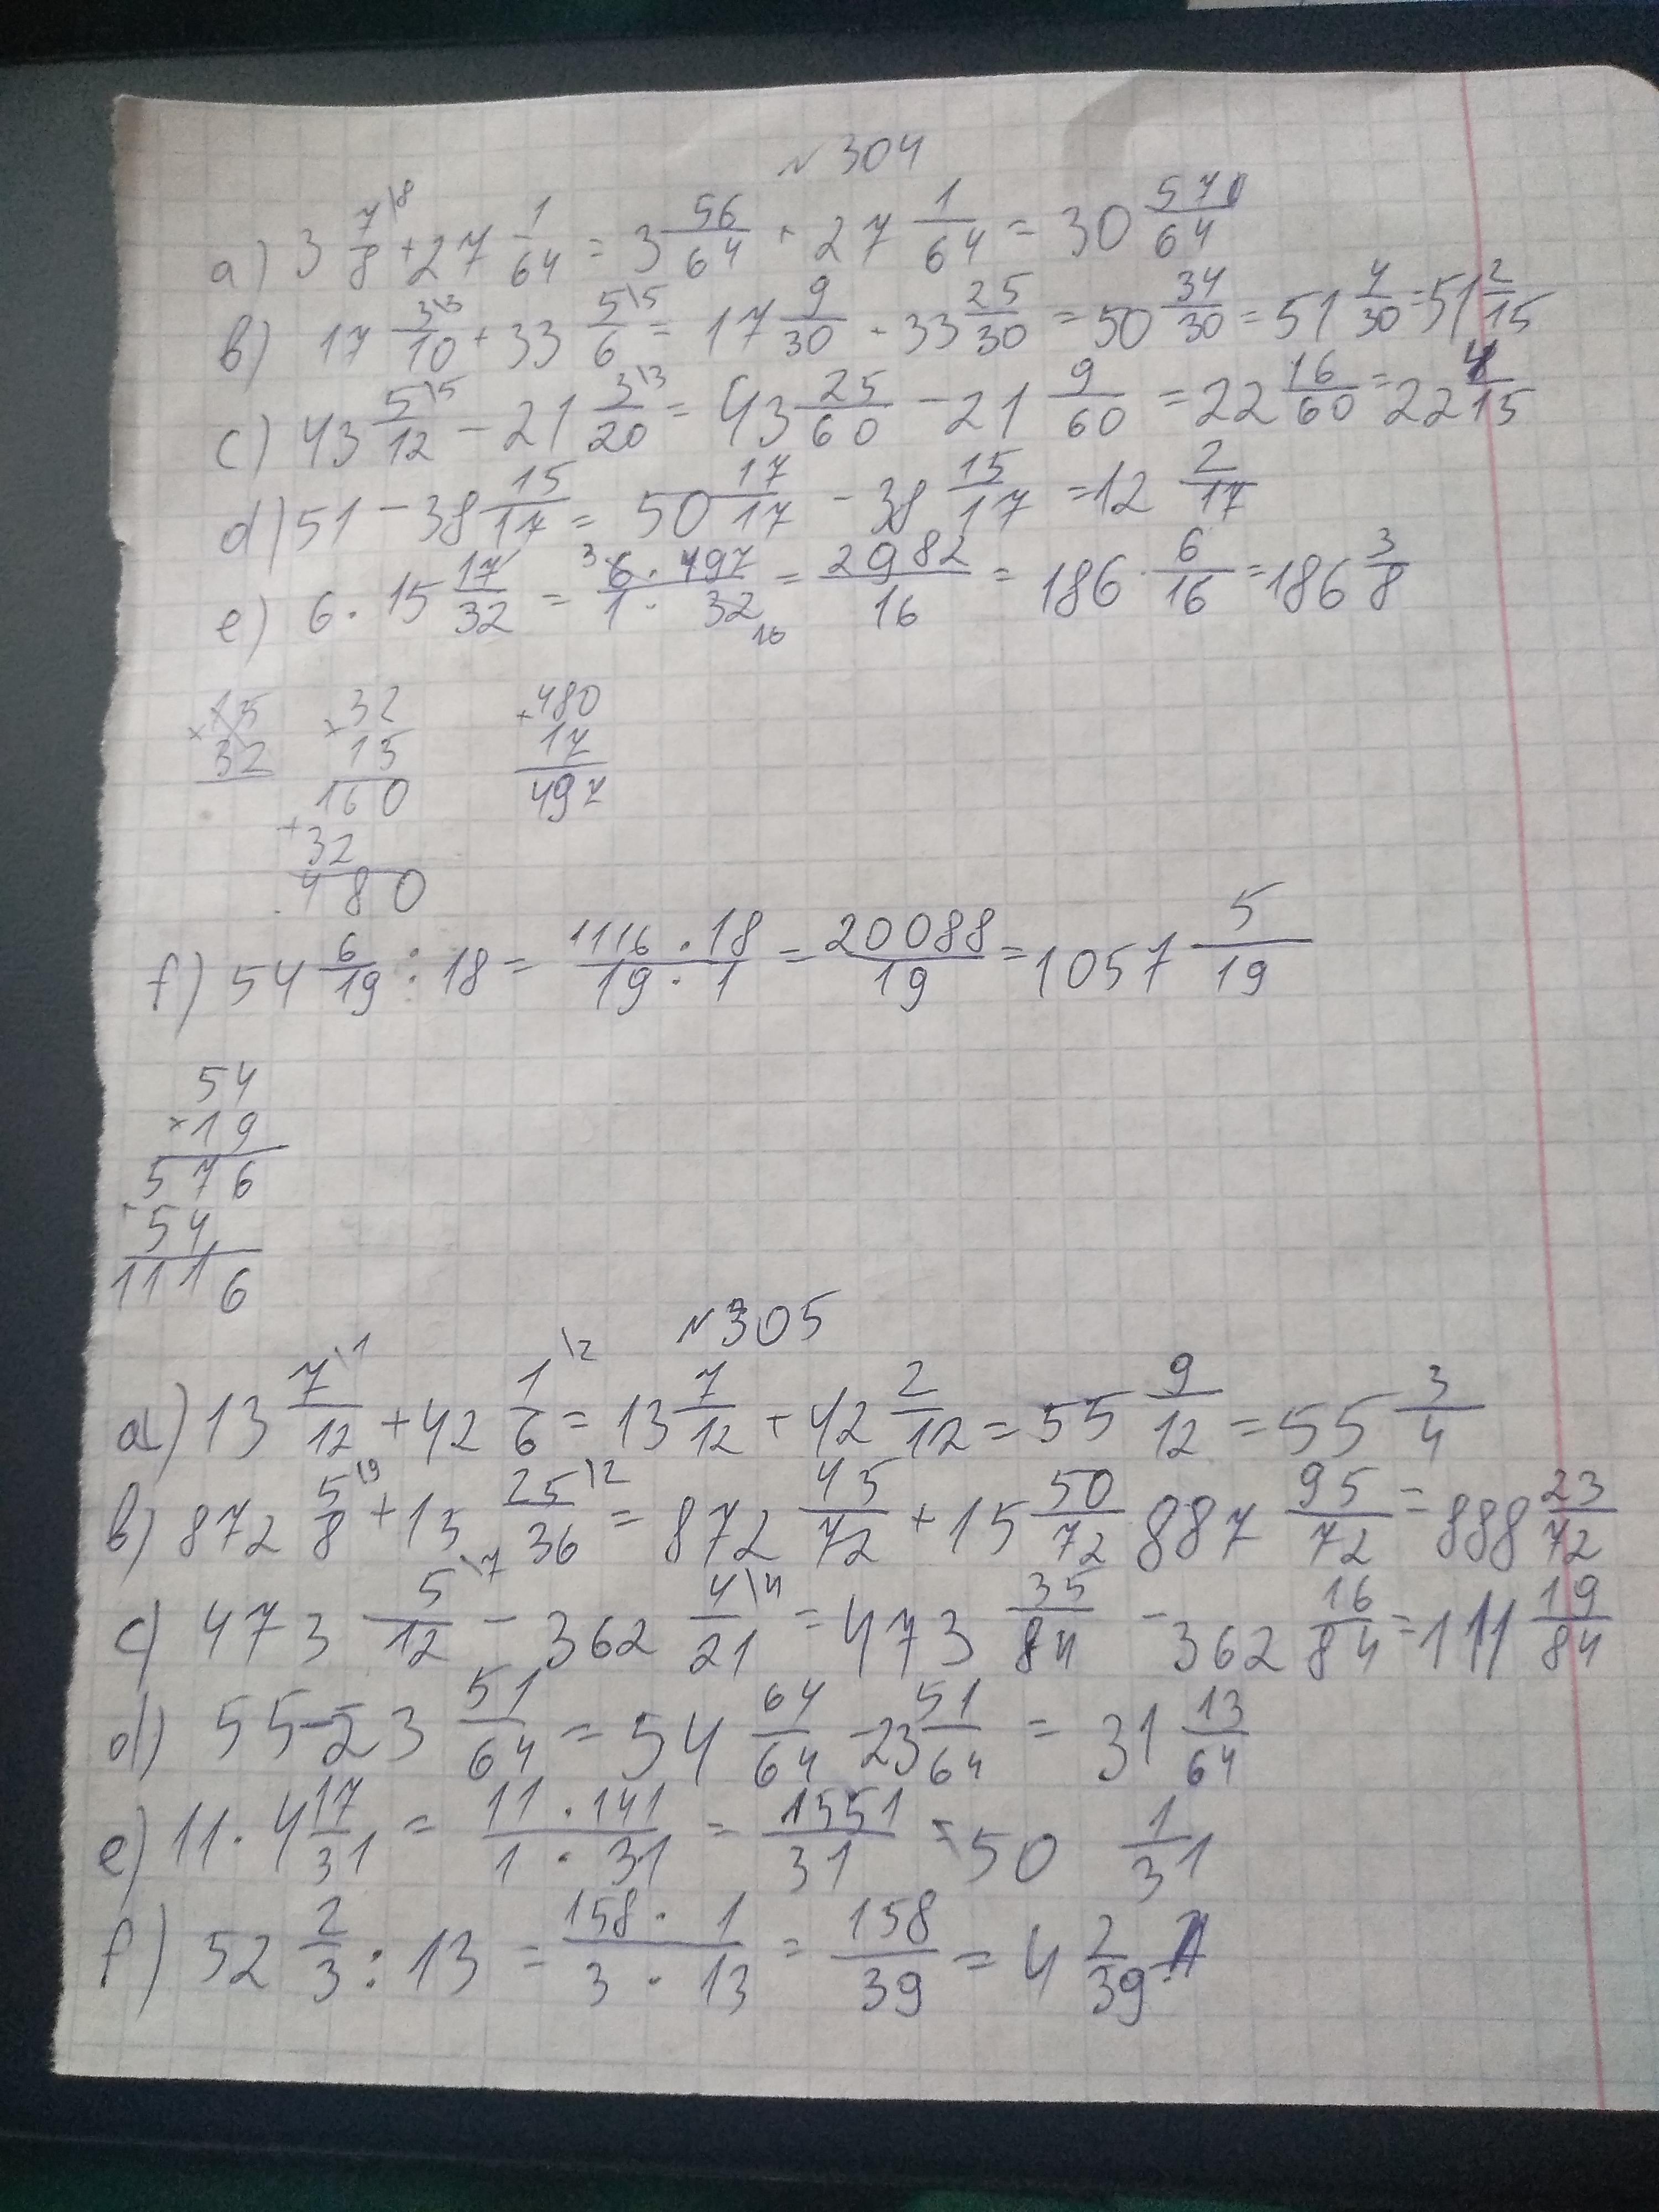 N 304
a) 3 7/8 \8 + 27 1/64 = 3 56/64 + 27 1/64 = 30 57/64
b) 17 3/10 \3 + 33 5/6 \5 = 17 9/30 - 33 25/30 = 50 34/30 = 51 4/30 = 51 2/15
c) 43 5/12 \5 - 21 3/20 \3 = 43 25/60 - 21 9/60 = 22 16/60 = 22 4/15
d) 51 - 38 15/17 = 50 17/17 - 38 15/17 = 12 2/17
e) 6 · 15 17/32 = 3 6 · 497 / 1 · 32 16 = 2982/16 = 186 · 6/16 = 186 3/8
× 15 × 32 + 480
32 15 17
160 497
+ 32
480
f) 54 6/19 : 18 = 1116 · 18 / 19 · 1 = 20088/19 = 1057 5/19
54
× 19
576
+ 54
1116
N 305
a) 13 7/12 \1 + 42 1/6 \2 = 13 7/12 + 42 2/12 = 55 9/12 = 55 3/4
b) 872 5/8 \9 + 15 25/36 \2 = 872 45/72 + 15 50/72 887 95/72 = 888 23/72
c) 473 5/12 \7 - 362 4/21 \4 = 473 35/84 - 362 16/84 = 111 19/84
d) 55 - 23 51/64 = 54 64/64 - 23 51/64 = 31 13/64
e) 11 · 4 17/31 = 11 · 141 / 1 · 31 = 1551/31 = 50 1/31
f) 52 2/3 : 13 = 158 · 1 / 3 · 13 = 158/39 = 4 2/39